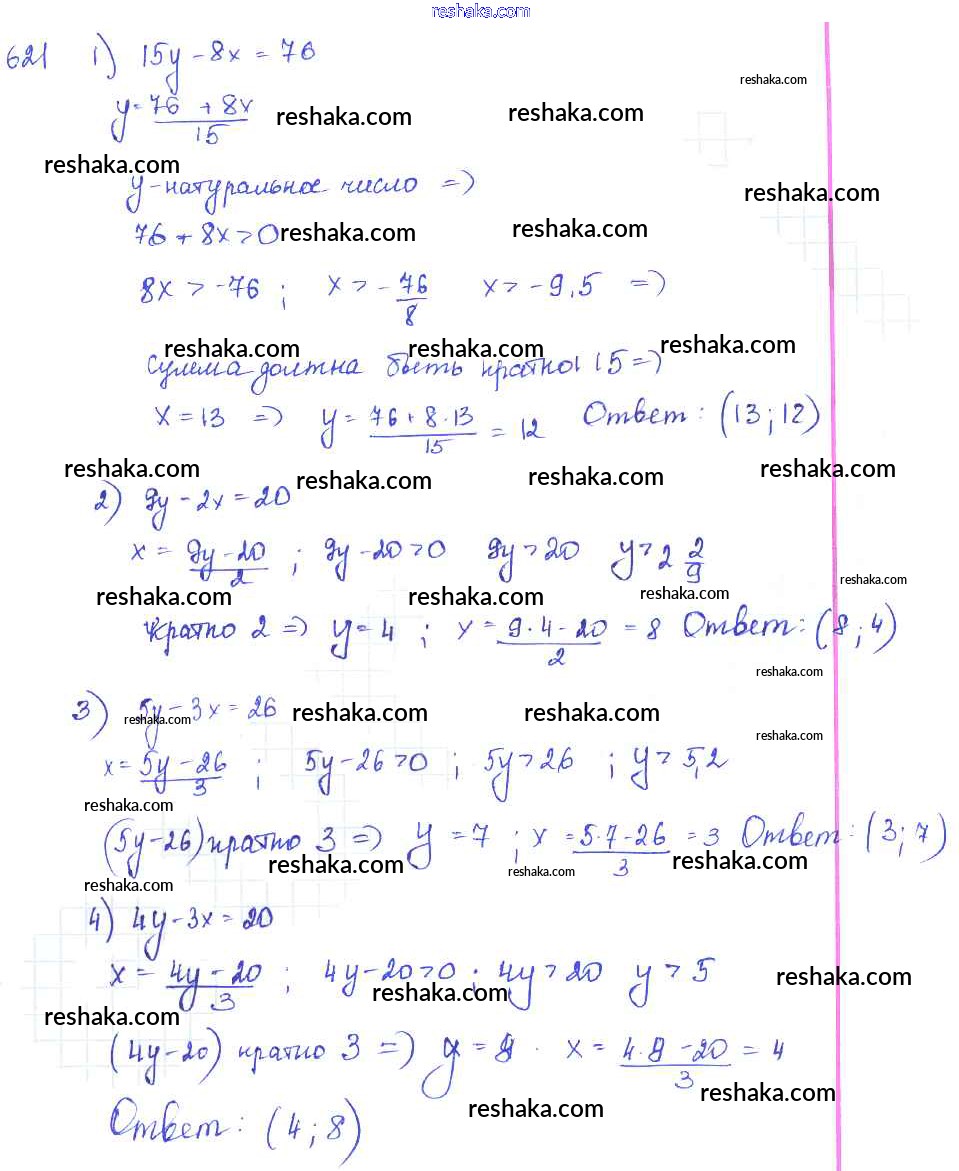 reshaka.com
621 1) 15y - 8x = 76
reshaka.com
y = (76 + 8x)/15
reshaka.com reshaka.com
reshaka.com
y - натуральное число =>
reshaka.com
76 + 8x > 0
reshaka.com reshaka.com
8x > -76 ; x > - 76/8 x > -9,5 =>
reshaka.com reshaka.com reshaka.com
сумма должна быть кратной 15 =>
x = 13 => y = (76 + 8 · 13)/15 = 12 Ответ: (13; 12)
reshaka.com reshaka.com reshaka.com reshaka.com
2) 9y - 2x = 20
x = (9y - 20)/2 ; 9y - 20 > 0 9y > 20 y > 2 2/9
reshaka.com reshaka.com reshaka.com reshaka.com
кратно 2 => y = 4 ; x = (9 · 4 - 20)/2 = 8 Ответ: (8; 4)
reshaka.com
3) 5y - 3x = 26
reshaka.com reshaka.com reshaka.com
reshaka.com
x = (5y - 26)/3 ; 5y - 26 > 0 ; 5y > 26 ; y > 5,2
reshaka.com
(5y - 26) кратно 3 => y = 7 ; x = (5 · 7 - 26)/3 = 3 Ответ: (3; 7)
reshaka.com reshaka.com reshaka.com
reshaka.com
4) 4y - 3x = 20
x = (4y - 20)/3 ; 4y - 20 > 0 ; 4y > 20 y > 5
reshaka.com reshaka.com
reshaka.com
(4y - 20) кратно 3 => y = 8 . x = (4 · 8 - 20)/3 = 4
reshaka.com reshaka.com
Ответ: (4; 8)